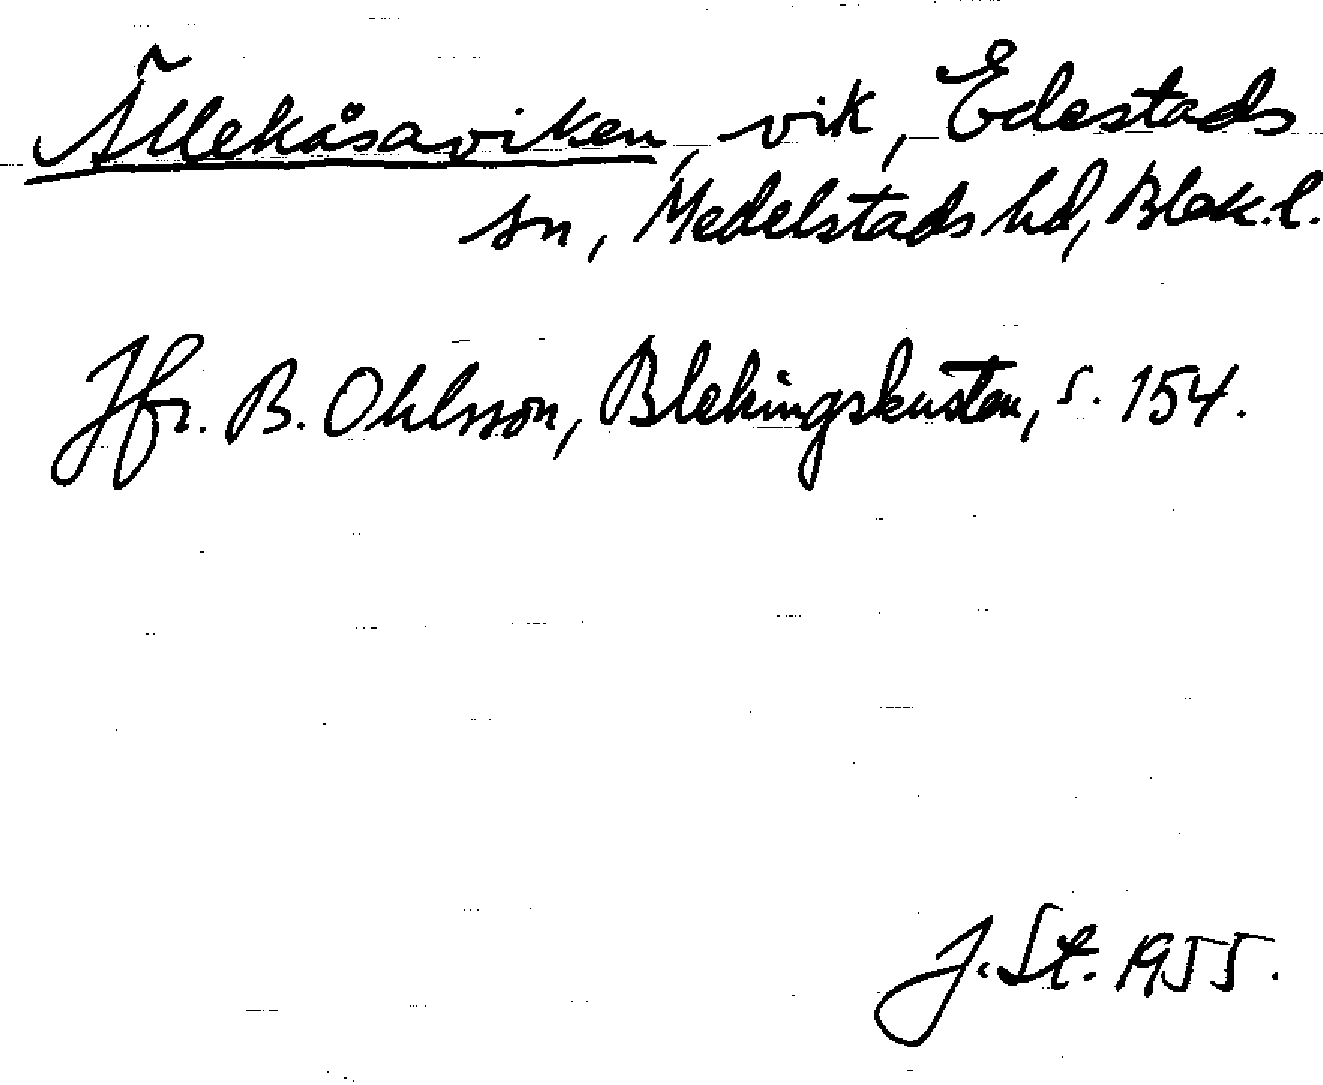 Ällekåsaviken, vik, Edestads
sn, Medelstads hd, Blek. l.
Jfr. B. Ohlsson, Blekingskusten, s. 154.
J. St. 1955.